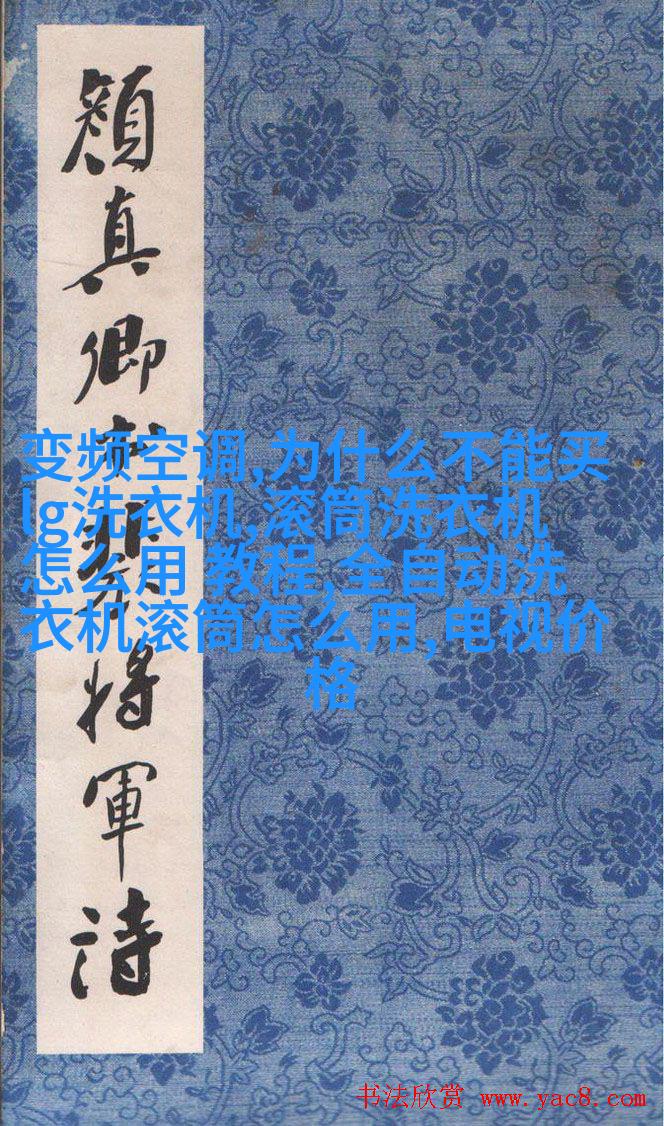 顔真卿書裴将軍詩
变频空调,为什么不能买
lg洗衣机,滚筒洗衣机
怎么用 教程,全自动洗
衣机滚筒怎么用,电视价
格
书法欣赏 www.yac8.com